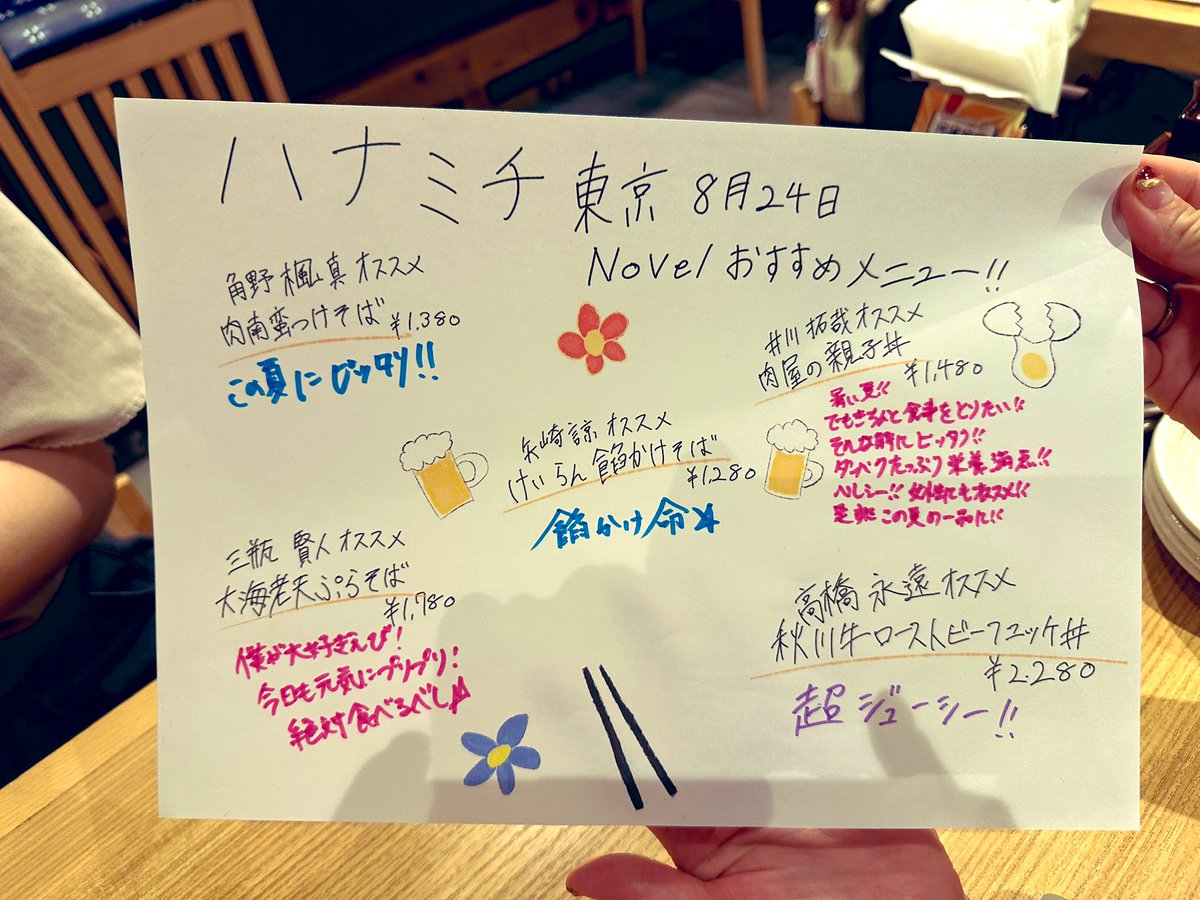 ハナミチ 東京 8月24日
Novelおすすめメニュー!!
角野 楓真 オススメ
肉南蛮つけそば ¥1,380
この夏にピッタリ!!
井川 拓哉 オススメ
肉屋の親子丼
¥1,480
暑い夏!!
でもきちんと食事をとりたい!!
そんな時にピッタリ!!
タンパクたっぷり栄養満点!!
ヘルシー!! 女性にもオススメ!!
是非この夏の一品に!!
矢崎 諒 オススメ
けいらん餡かけそば
¥1,280
餡かけ命
三瓶 賢人 オススメ
大海老天ぷらそば
¥1,780
僕が大好きえび!
今日も元気にプリプリ!
絶対食べるべし
高橋 永遠 オススメ
秋川牛ローストビーフユッケ丼
¥2,280
超ジューシー!!